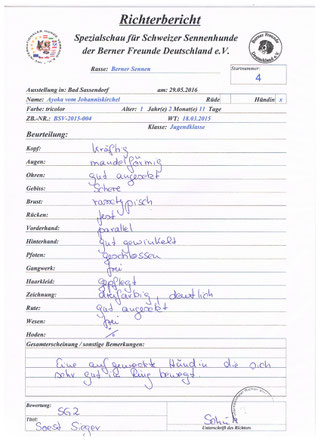 Richterbericht
Spezialschau für Schweizer Sennenhunde
der Berner Freunde Deutschland e.V.
Rasse: Berner Sennen
Startnummer:
4
Ausstellung in: Bad Sassendorf am: 29.05.2016
Name: Ayoka vom Johanniskirchel Rüde Hündin x
Farbe: tricolor Alter: 1 Jahr(e) 2 Monat(e) 11 Tage
ZB.-NR.: BSV-2015-004 WT: 18.03.2015
Klasse: Jugendklasse
Beurteilung:
Kopf: kräftig
Augen: mandelförmig
Ohren: gut angesetzt
Gebiss: Schere
Brust: rassetypisch
Rücken: fest
Vorderhand: parallel
Hinterhand: gut gewinkelt
Pfoten: geschlossen
Gangwerk: frei
Haarkleid: gepflegt
Zeichnung: dreifarbig, deutlich
Rute: gut angesetzt
Wesen: frei
Hoden:
Gesamterscheinung / sonstige Bemerkungen:
Eine aufgeweckte Hündin die sich
sehr gut im Ring bewegt.
Bewertung:
SG2
Titel:
Soest Sieger
Unterschrift des Richters